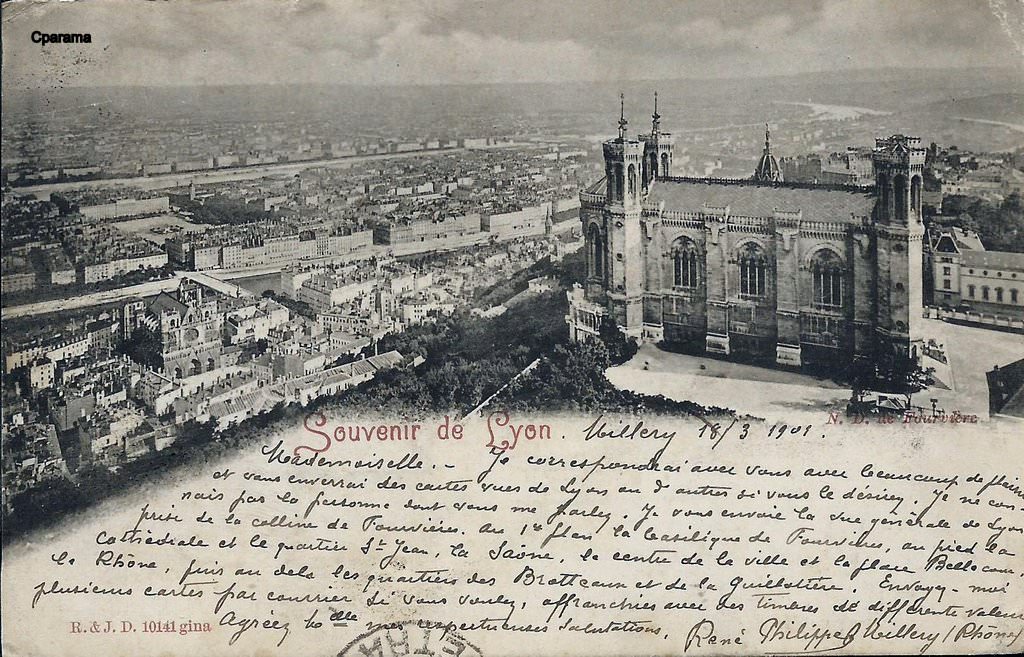 Cparama
N. D. de Fourvière
Souvenir de Lyon. Millery 18/3 1901.
Mademoiselle. - Je correspondrai avec vous avec beaucoup de plaisir
et vous enverrai des cartes vues de Lyon ou d'autres si vous le désirez. Je ne con-
nais pas la personne dont vous me parlez. Je vous envoie la vue générale de Lyon
prise de la colline de Fourvières. Au 1er plan la basilique de Fourvières, au pied la
Cathédrale et le quartier St Jean, la Saône, le centre de la ville et la place Bellecour,
le Rhône, puis au delà les quartiers des Brotteaux et de la Guillotière. Envoyez-moi
plusieurs cartes par courrier si vous voulez, affranchies avec des timbres de différente valeur
Agréez Melle mes respectueuses salutations. René Philippe Millery (Rhône)
R. & J. D. 10141 gina